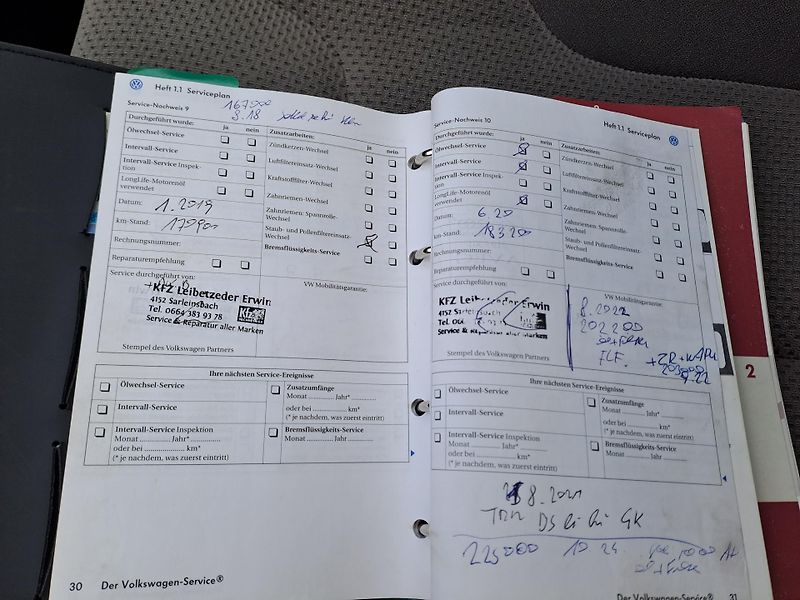 Heft 1.1 Serviceplan
Service-Nachweis 9
167000
8.18
Durchgeführt wurde: ja nein Zusatzarbeiten: ja nein
Ölwechsel-Service
Zündkerzen-Wechsel
Intervall-Service
Luftfiltereinsatz-Wechsel
Intervall-Service Inspek-
tion
Kraftstofffilter-Wechsel
LongLife-Motorenöl
verwendet
Zahnriemen-Wechsel
Datum: 1.2019
Zahnriemen: Spannrolle-
Wechsel
km-Stand: 179900
Staub- und Pollenfiltereinsatz-
Wechsel
Rechnungsnummer:
Bremsflüssigkeits-Service
Reparaturempfehlung
Service durchgeführt von:
VW Mobilitätsgarantie:
KFZ Leibetzeder Erwin
4152 Sarleinsbach
Tel. 0664 383 93 78
Service & Reparatur aller Marken
Stempel des Volkswagen Partners
Ihre nächsten Service-Ereignisse
Ölwechsel-Service
Zusatzumfänge
Monat Jahr*
Intervall-Service
oder bei km*
(* je nachdem, was zuerst eintritt)
Intervall-Service Inspektion
Monat Jahr*
oder bei km*
(* je nachdem, was zuerst eintritt)
Bremsflüssigkeits-Service
Monat Jahr
30 Der Volkswagen-Service®
Service-Nachweis 10
Heft 1.1 Serviceplan
Durchgeführt wurde: ja nein Zusatzarbeiten: ja nein
Ölwechsel-Service
Zündkerzen-Wechsel
Intervall-Service
Luftfiltereinsatz-Wechsel
Intervall-Service Inspek-
tion
Kraftstofffilter-Wechsel
LongLife-Motorenöl
verwendet
Zahnriemen-Wechsel
Datum: 6.20
Zahnriemen: Spannrolle-
Wechsel
km-Stand: 183200
Staub- und Pollenfiltereinsatz-
Wechsel
Rechnungsnummer:
Bremsflüssigkeits-Service
Reparaturempfehlung
Service durchgeführt von:
VW Mobilitätsgarantie:
KFZ Leibetzeder Erwin
4152
Tel.
Service & Reparatur aller Marken
8.2022
202200
Stempel des Volkswagen Partners
Ihre nächsten Service-Ereignisse
Ölwechsel-Service
Zusatzumfänge
Monat Jahr*
Intervall-Service
oder bei km*
(* je nachdem, was zuerst eintritt)
Intervall-Service Inspektion
Monat Jahr*
oder bei km*
(* je nachdem, was zuerst eintritt)
Bremsflüssigkeits-Service
Monat Jahr
8.2021
225000 10 24
Der Volkswagen-Service® 31
2